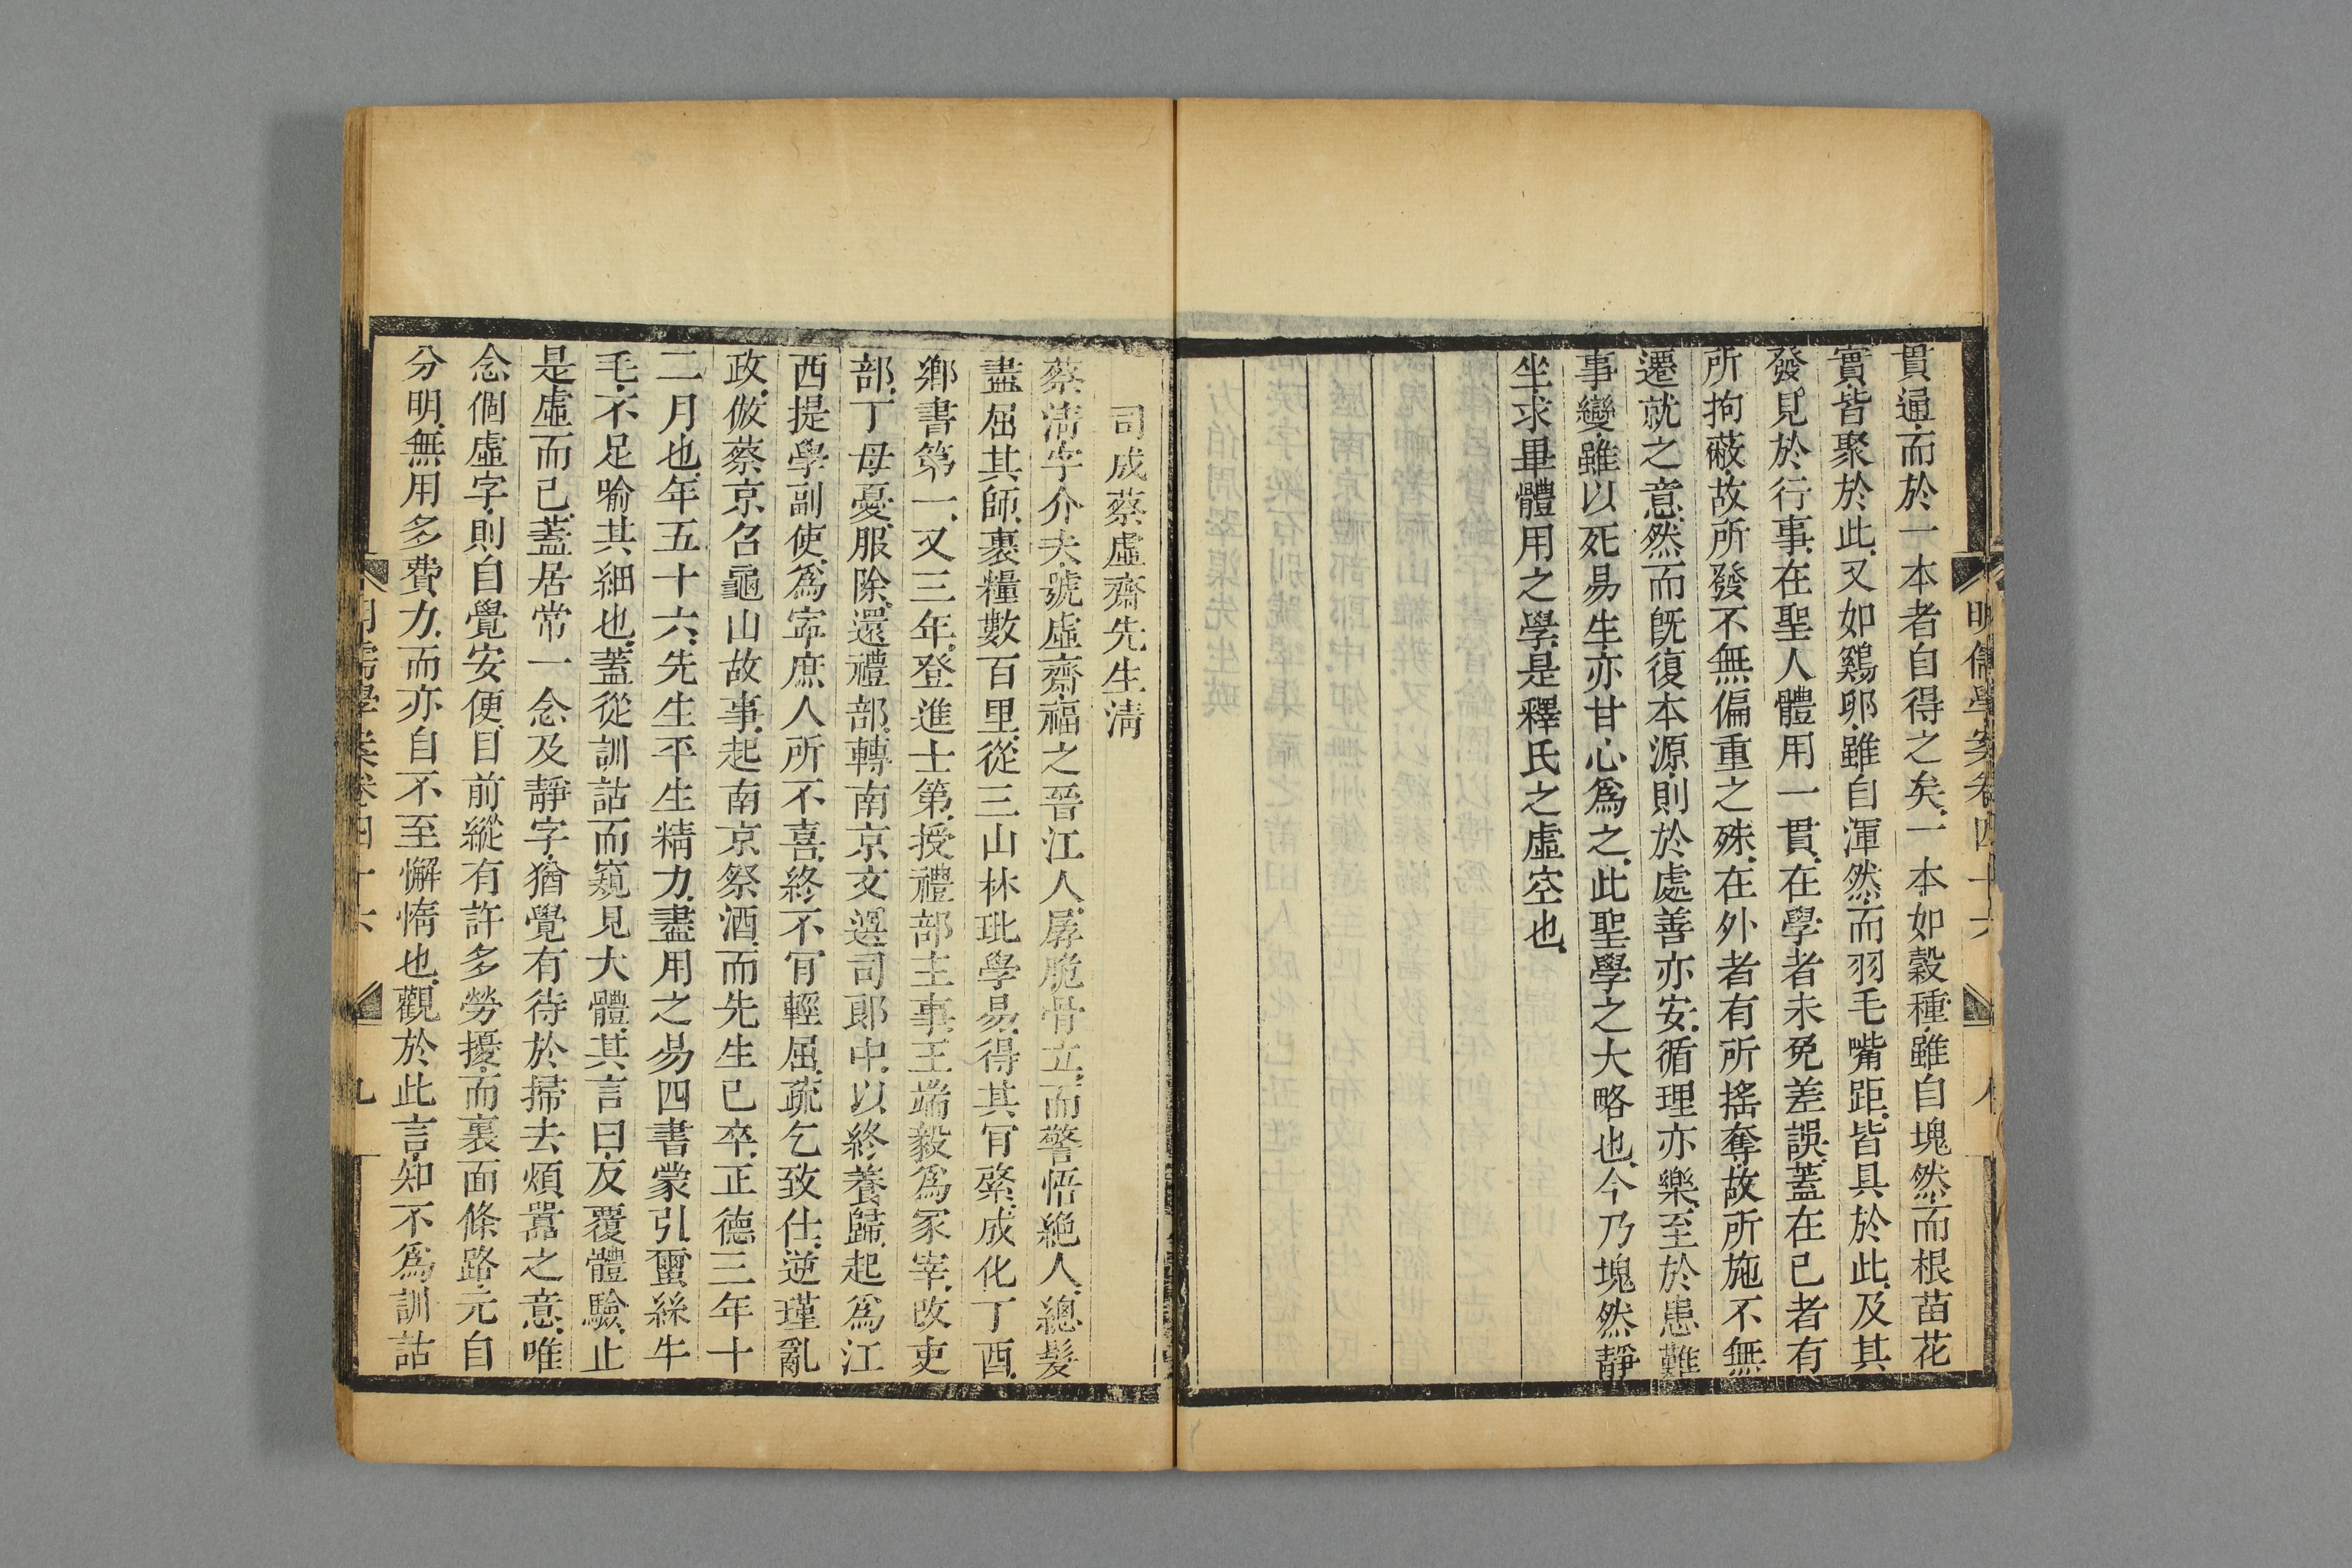 貫通、而於一本者自得之矣、一本如穀種、雖自塊然、而根苗花
實、皆聚於此、又如鷄卵、雖自渾然、而羽毛嘴距、皆具於此、及其
發見於行事、在聖人體用一貫、在學者未免差誤、蓋在己者有
所拘蔽、故所發不無偏重之殊、在外者有所搖奪、故所施不無
遷就之意、然而旣復本源、則於處善亦安、循理亦樂、至於患難
事變、雖以死易生、亦甘心爲之、此聖學之大略也、今乃塊然靜
坐、求畢體用之學、是釋氏之虛空也、
明儒學案卷四十六
八
司成蔡虛齋先生淸
蔡淸字介夫、號虛齋、福之晉江人、孱脆骨立、而警悟絶人、總髮
盡屈其師、裹糧數百里、從三山林玭學易、得其肎綮、成化丁酉、
鄕書第一、又三年、登進士第、授禮部主事、王端毅爲冢宰、改吏
部、丁母憂、服除、還禮部、轉南京文選司郞中、以終養歸、起爲江
西提學副使、爲寧庶人所不喜、終不肎輕屈、疏乞致仕、逆瑾亂
政、倣蔡京召龜山故事、起南京祭酒、而先生已卒、正德三年十
二月也、年五十六、先生平生精力、盡用之易四書蒙引、蠒絲牛
毛、不足喻其細也、蓋從訓詁而窺見大體、其言曰、反覆體驗、止
是虛而已、蓋居常一念及靜字、猶覺有待於掃去煩囂之意、唯
念個虛字、則自覺安便、目前縱有許多勞擾、而裏面條路元自
分明、無用多費力、而亦自不至懈惰也、觀於此言、知不爲訓詁
明儒學案卷四十六
九